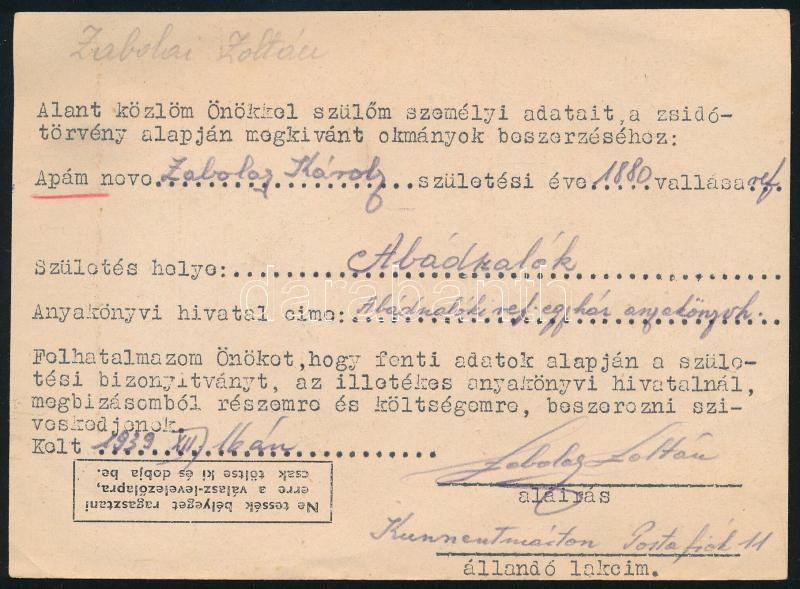 Zabolai Zoltán
Alant közlöm Önökkel szülőm személyi adatait, a zsidó-
törvény alapján megkivánt okmányok beszerzéséhez:
Apám neve Zabolay Károly születési éve 1880 vallása ref.
Születés helye: Abádszalók
Anyakönyvi hivatal cime: Abádszalóki ref. egyház anyakönyvh.
Felhatalmazom Önöket, hogy fenti adatok alapján a szüle-
tési bizonyitványt, az illetékes anyakönyvi hivatalnál,
megbizásomból részemre és költségemre, beszerezni szi-
veskedjenek.
Kelt 1939 XII. 16án
Zabolay Zoltán
aláirás
Ne tessék bélyeget ragasztani
erre a válasz-levelezőlapra,
csak töltse ki és dobja be.
Kunszentmárton Postafiók 11
állandó lakcim.
darabanth